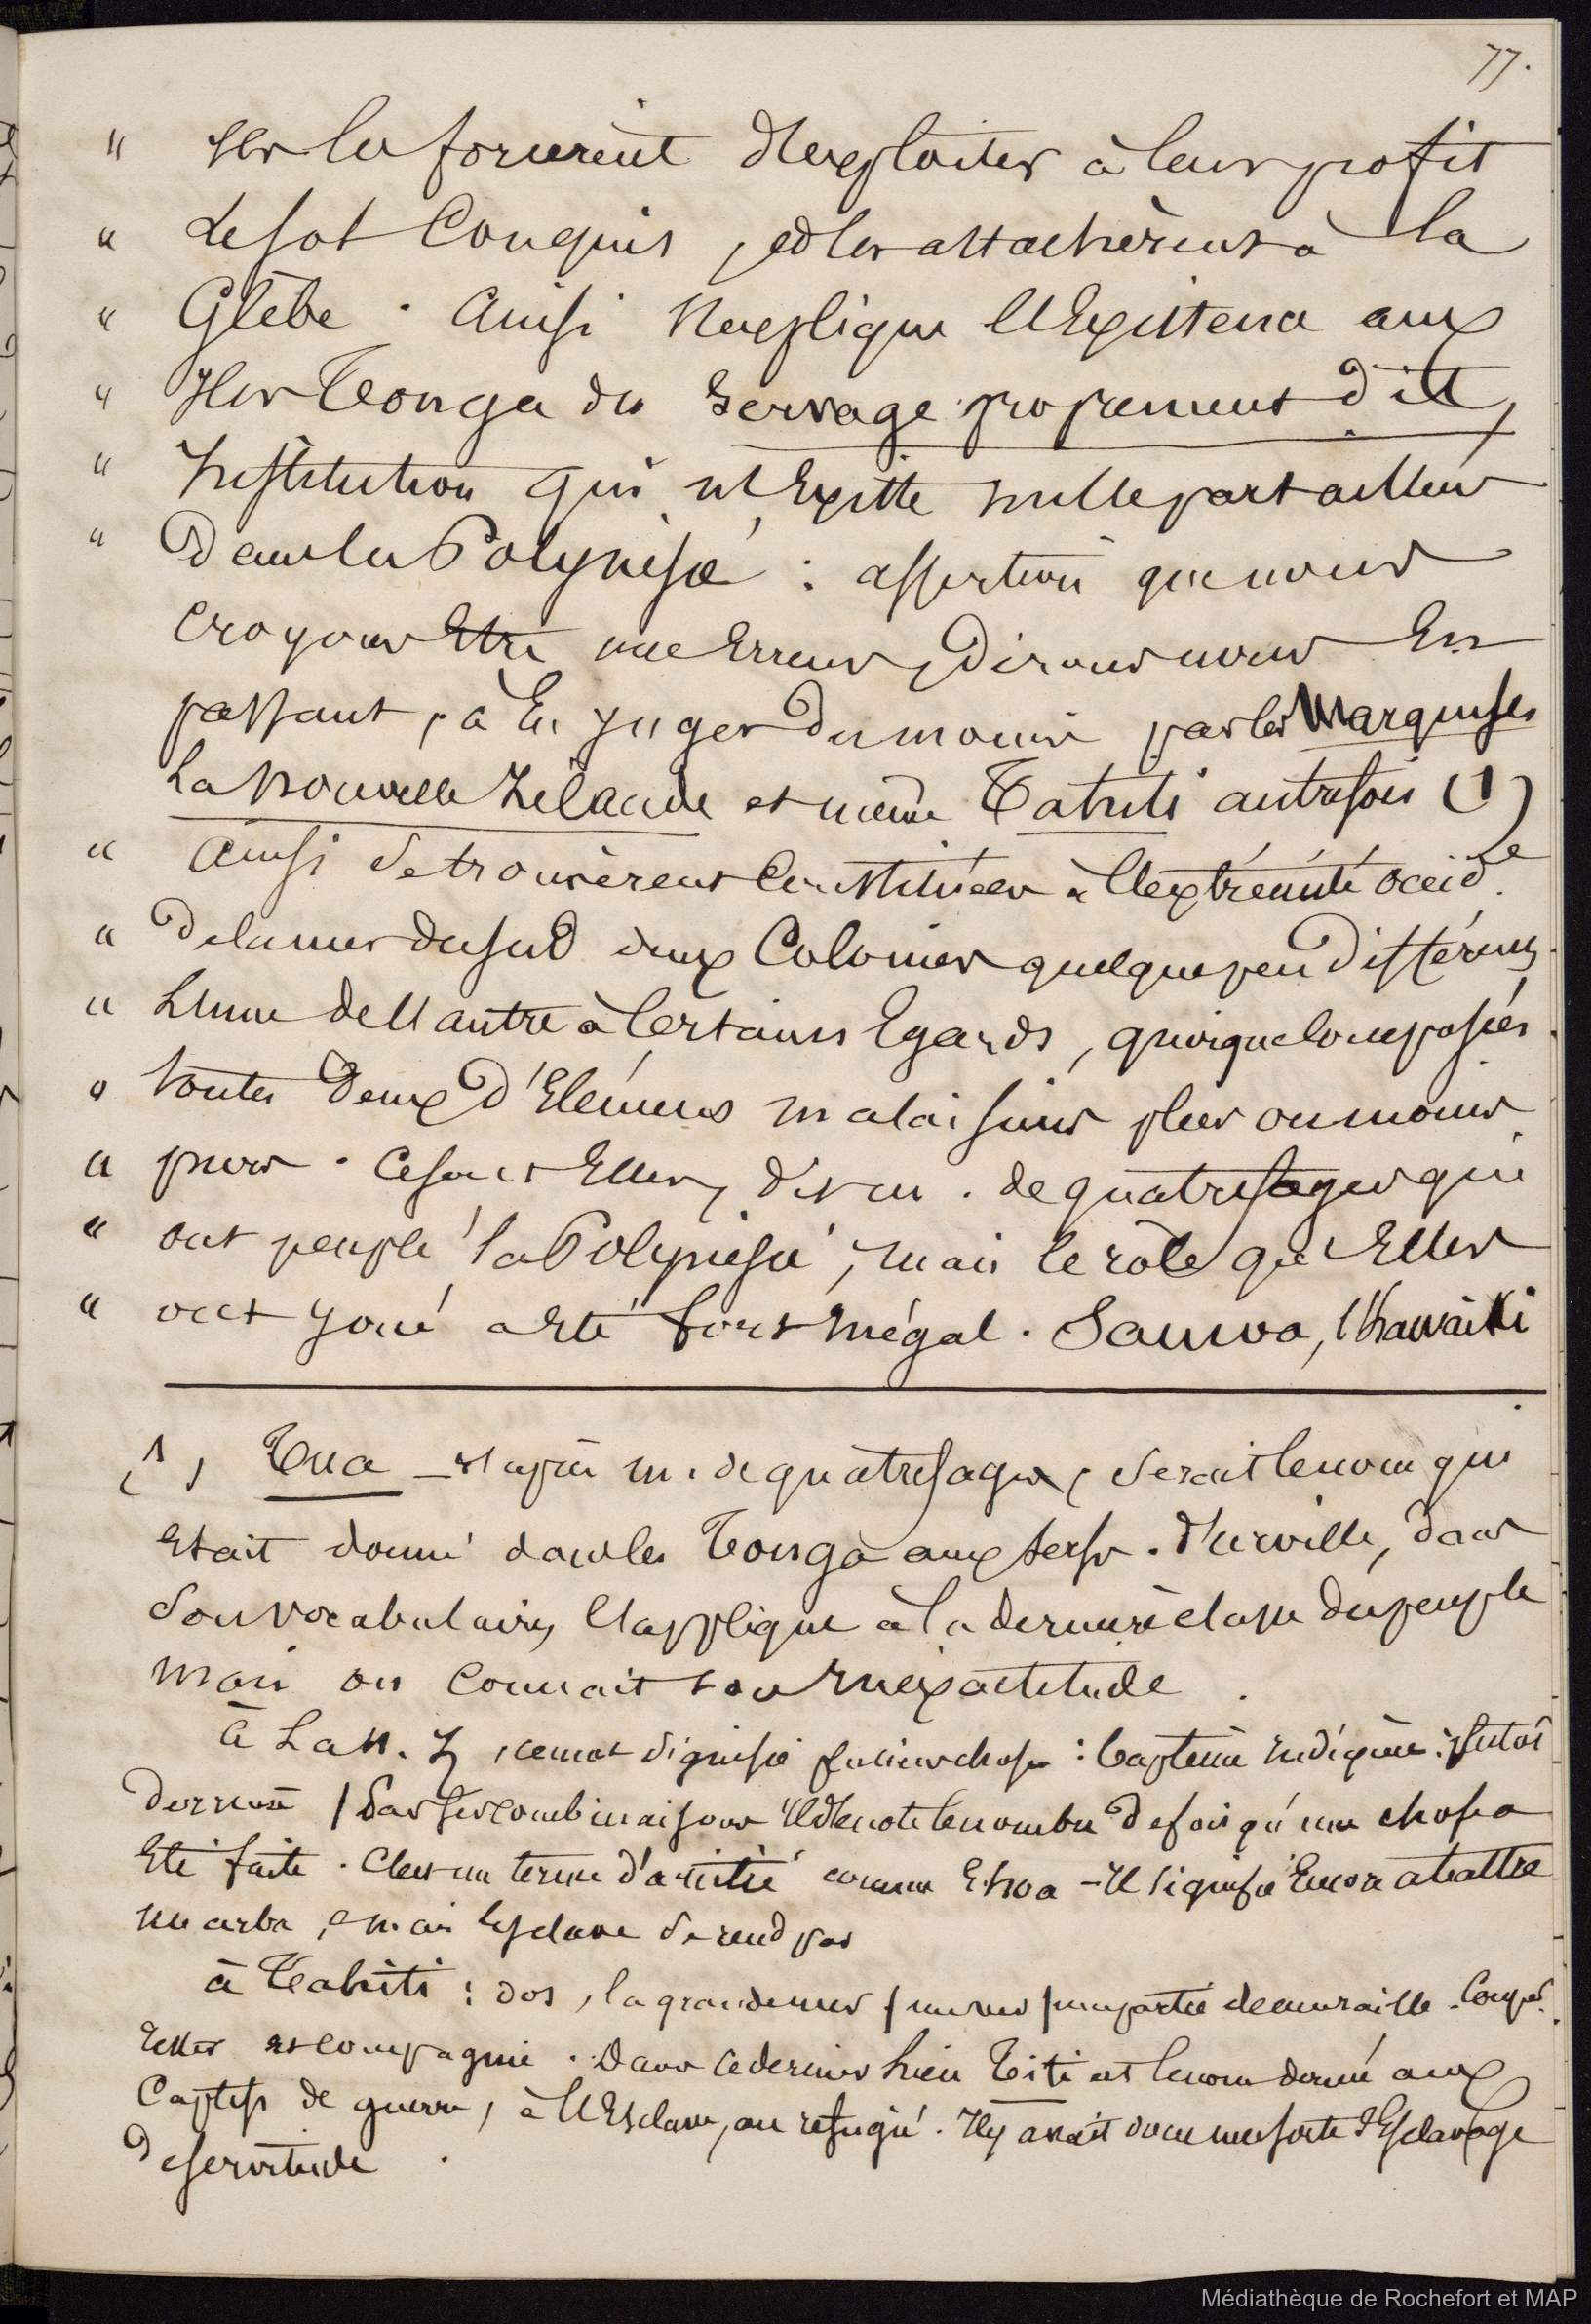 77.
" Ils les forcèrent d'exploiter à leur profit
" le sol conquis, et les attachèrent à la
" Glèbe. Ainsi s'explique l'Existence aux
" Iles Tonga du servage proprement dit,
" Institution qui n'Existe nulle part ailleurs
" Dans la Polynésie : assertion que nous
croyons Etre une Erreur, Dirons nous En
passant, à En juger Du moins par les Marquises
La Nouvelle Zélande et même Tahiti autrefois (1)
" Ainsi se trouvèrent Constituées à l'extrémité occid.le
" De la mer du Sud deux Colonies quelque peu Différentes
" L'une de l'autre à Certains Egards, quoique composées
" toutes Deux D'Eléments malaisiens plus ou moins
" purs. Ce sont Elles, dit m. de quatrefages qui
" ont peuplé la Polynésie, mais le rôle qu'Elles
" ont joué a Eté fort Inégal. Samoa, l'hawaïki
(1) Tua _ d'après m. de quatrefages, serait le nom qui
Etait donné dans les Tonga aux serfs. D'urville, dans
son vocabulaire, l'applique à la dernière classe du peuple
mais on connait son Inexactitude.
à La N. Z, ce mot signifie plusieurs choses : Capitaine Indigène :
derrière / Dans ses combinaisons Il dénote le nombre de fois qu'une chose a
Eté faite. C'est un terme d'amitié comme E hoa - Il signifie Encore abattre
un arbre, mais Esclave se rend par
à Tahiti : dos, la grande mer / une partie de muraille. Couper.
Jetter et compagnie. Dans ce dernier lieu Titi est le nom donné aux
Captifs de guerre, à l'Esclave, au réfugié. Il y avait donc une sorte d'Esclavage
De servitude.
Médiathèque de Rochefort et MAP